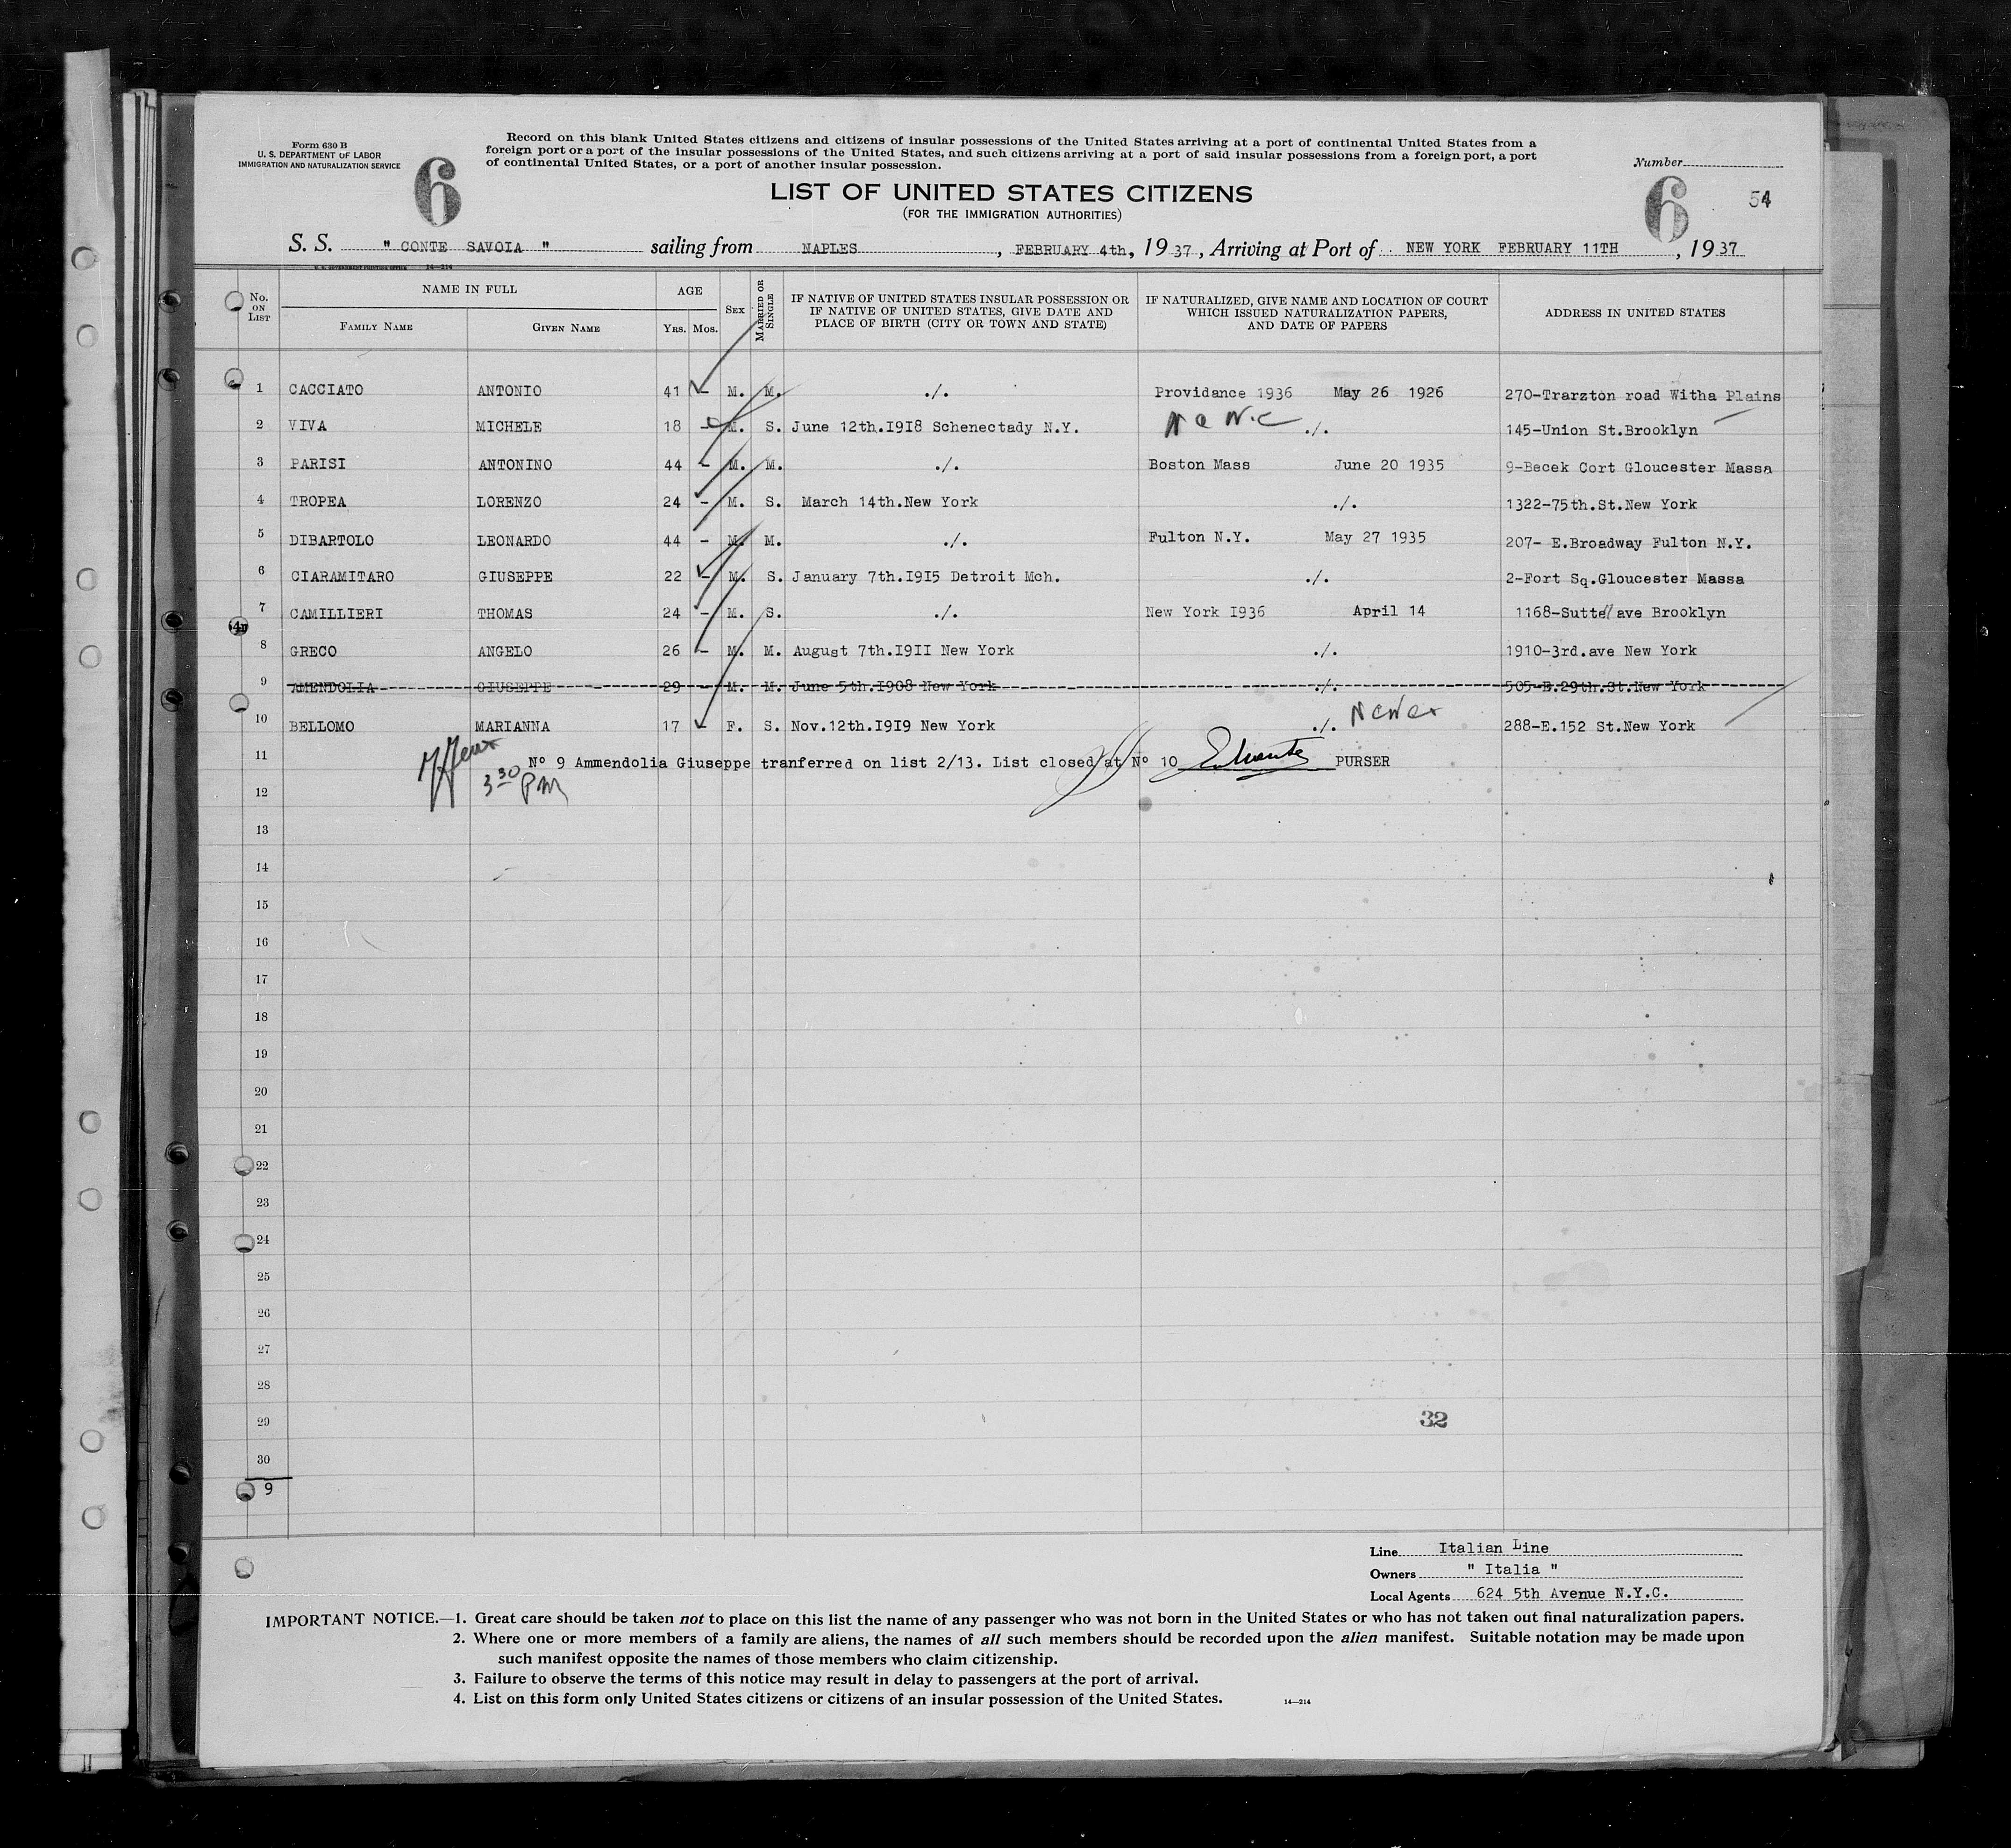 Form 630 B
U. S. DEPARTMENT OF LABOR
IMMIGRATION AND NATURALIZATION SERVICE
6
Record on this blank United States citizens and citizens of insular possessions of the United States arriving at a port of continental United States from a
foreign port or a port of the insular possessions of the United States, and such citizens arriving at a port of said insular possessions from a foreign port, a port
of continental United States, or a port of another insular possession.
Number
6
54
LIST OF UNITED STATES CITIZENS
(FOR THE IMMIGRATION AUTHORITIES)
S. S. " CONTE SAVOIA " sailing from NAPLES, FEBRUARY 4th, 1937, Arriving at Port of NEW YORK FEBRUARY 11TH, 1937
U. S. GOVERNMENT PRINTING OFFICE 14—214
No. ON LIST
NAME IN FULL
FAMILY NAME GIVEN NAME
AGE
YRS. MOS.
SEX
MARRIED OR SINGLE
IF NATIVE OF UNITED STATES INSULAR POSSESSION OR
IF NATIVE OF UNITED STATES, GIVE DATE AND
PLACE OF BIRTH (CITY OR TOWN AND STATE)
IF NATURALIZED, GIVE NAME AND LOCATION OF COURT
WHICH ISSUED NATURALIZATION PAPERS,
AND DATE OF PAPERS
ADDRESS IN UNITED STATES
1 CACCIATO ANTONIO 41 – M. M. ./. Providance 1936 May 26 1926 270-Trarzton road Witha Plains
2 VIVA MICHELE 18 – M. S. June 12th.I9I8 Schenectady N.Y. ./. 145-Union St.Brooklyn
3 PARISI ANTONINO 44 – M. M. ./. Boston Mass June 20 1935 9-Becek Cort Gloucester Massa
4 TROPEA LORENZO 24 – M. S. March 14th.New York ./. 1322-75th.St.New York
5 DIBARTOLO LEONARDO 44 – M. M. ./. Fulton N.Y. May 27 1935 207- E.Broadway Fulton N.Y.
6 CIARAMITARO GIUSEPPE 22 – M. S. January 7th.I9I5 Detroit Mch. ./. 2-Fort Sq.Gloucester Massa
7 CAMILLIERI THOMAS 24 – M. S. ./. New York I936 April 14 1168-Sutter ave Brooklyn
8 GRECO ANGELO 26 – M. M. August 7th.I9II New York ./. 1910-3rd.ave New York
9 AMENDOLIA GIUSEPPE 29 – M. M. June 5th.I908 New York ./. 505-E.29th.St.New York
10 BELLOMO MARIANNA 17 – F. S. Nov.12th.I9I9 New York ./. 288-E.152 St.New York
11 Nº 9 Ammendolia Giuseppe tranferred on list 2/13. List closed at Nº 10 PURSER
3 30 PM
12
13
14
15
16
17
18
19
20
21
22
23
24
25
26
27
28
29
32
30
9
Line Italian Line
Owners " Italia "
Local Agents 624 5th Avenue N.Y.C.
IMPORTANT NOTICE.—1. Great care should be taken not to place on this list the name of any passenger who was not born in the United States or who has not taken out final naturalization papers.
2. Where one or more members of a family are aliens, the names of all such members should be recorded upon the alien manifest. Suitable notation may be made upon
such manifest opposite the names of those members who claim citizenship.
3. Failure to observe the terms of this notice may result in delay to passengers at the port of arrival.
4. List on this form only United States citizens or citizens of an insular possession of the United States. 14—214